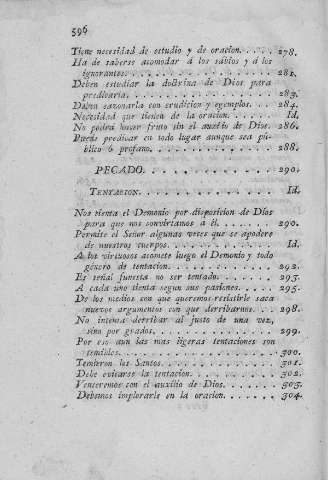 596
Tiene necesidad de estudio y de oracion. . . . . 278.
Ha de saberse acomodar á los sabios y á los
ignorantes. . . . . . . . . . . . 281.
Deben estudiar la doctrina de Dios para
predicarla. . . . . . . . . . . . 283.
Deben sazonarla con erudicion y egemplos. . . . 284.
Necesidad que tienen de la oracion. . . . . . Id.
No podrá hacer fruto sin el auxilio de Dios. 286.
Puede predicar en todo lugar aunque sea pú-
blico ó profano. . . . . . . . . . . 288.
PECADO. . . . . . . . . . . . 290.
TENTACION. . . . . . . . . . . . Id.
Nos tienta el Demonio por disposicion de Dios
para que nos convirtamos á él. . . . . . . 290.
Permite el Señor algunas veces que se apodere
de nuestros cuerpos. . . . . . . . . . Id.
A los virtuosos acomete luego el Demonio y todo
género de tentacion. . . . . . . . . . 292.
Es señal funesta no ser tentado. . . . . . . 293.
A cada uno tienta segun sus pasiones. . . . . 295.
De los medios con que queremos resistirle saca
nuevos argumentos con que derribarnos. . . 298.
No intenta derribar al justo de una vez,
sino por grados. . . . . . . . . . . 299.
Por eso aun las mas ligeras tentaciones son
temibles. . . . . . . . . . . . . 300.
Temieron los Santos. . . . . . . . . . 301.
Debe evitarse la tentacion. . . . . . . . . 302.
Venceremos con el auxilio de Dios. . . . . . 303.
Debemos implorarle en la oracion. . . . . . 304.